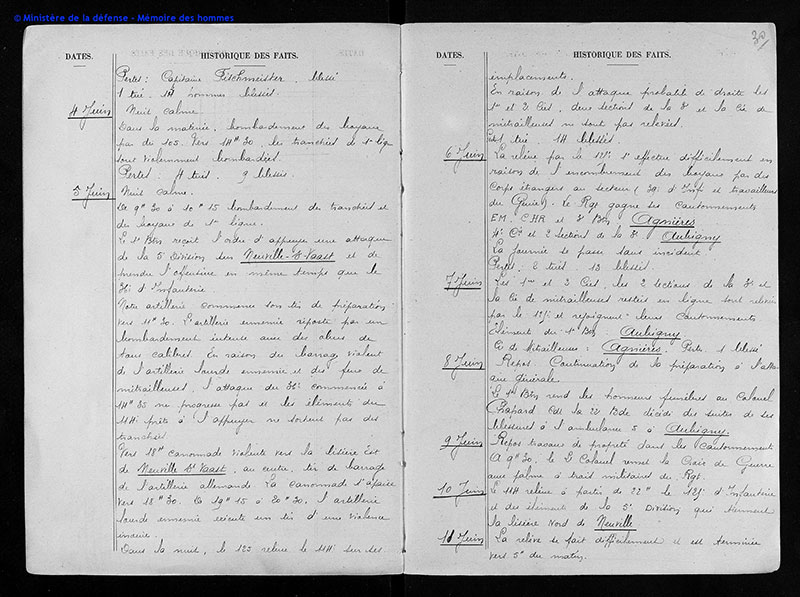 © Ministère de la défense - Mémoire des hommes
DATES. HISTORIQUE DES FAITS.
Pertes : Capitaine Fischmeister, blessé
1 tué. 14 hommes blessés
4 Juin Nuit calme.
Dans la matinée, bombardement des boyaux
par du 105. Vers 14h30, les tranchées de 1e ligne
sont violemment bombardées.
Pertes. 4 tués 9 blessés.
5 Juin Nuit calme.
De 9h30 à 10h15 bombardement des tranchées et
des boyaux de 1e ligne.
Le 1er Btn reçoit l'ordre d'appuyer une attaque
de la 5 Division sur Neuville-St-Vaast et de
prendre l'offensive en même temps que le
36e d'Infanterie.
Notre artillerie commence son tir de préparation
vers 11h30. L'artillerie ennemie riposte par un
bombardement intense avec des obus de
tous calibres. En raison du barrage violent
de l'artillerie lourde ennemie et des feux de
mitrailleuses, l'attaque du 36e commencée à
14h35 ne progresse pas et les éléments du
114e prêts à l'appuyer ne sortent pas des
tranchées
Vers 18h canonnade violente vers la lisière Est
de Neuville St Vaast, au centre, tir de barrage
de l'artillerie allemande. La canonnade s'apaise
vers 18h30. De 19h15 à 20h30, l'artillerie
lourde ennemie exécute un tir d'une violence
inouïe.
Dans la nuit, le 125 relève le 114e sur ses
30
DATES. HISTORIQUE DES FAITS.
emplacements.
En raison de l'attaque probable de droite les
1e et 2 Cies, deux sections de la 3e et la Cie de
mitrailleuses ne sont pas relevées.
1 tué 14 blessés.
6 Juin La relève par le 125e s'effectue difficilement en
raison de l'encombrement des boyaux par des
Corps étrangers au secteur (39e d'Inf et travailleurs
du Génie). Le Rgt gagne ses cantonnements
EM. CHR et 3e Btn Agnières
4e Cie et 2 sections de la 3e Aubigny
La journée se passe sans incident
Pertes. 2 tués. 13 blessés.
7 Juin Les 1re et 2 Cies, les 2 sections de la 3e et
la Cie de mitrailleuses restées en ligne sont relevées
par le 125e et rejoignent leurs cantonnements
éléments du 1er Btn Aubigny
Cie de Mitrailleuses : Agnières. Perte. 1 blessé
8 Juin Repos. Continuation de la préparation à l'atta-
que générale.
Le 1er Btn rend les honneurs funèbres au Colonel
Chapard Cdt la 22 Bde décédé des suites de ses
blessures à l'ambulance 5 à Aubigny.
9 Juin Repos travaux de propreté dans les cantonnements
A 9h30. le Lt Colonel remet la Croix de Guerre
avec palme à trois militaires du Rgt.
10 Juin Le 114 relève à partir de 22h le 129e d'Infanterie
et des éléments de la 5e Division qui tiennent
la lisière Nord de Neuville
11 Juin La relève se fait difficilement et est terminée
vers 5h du matin.